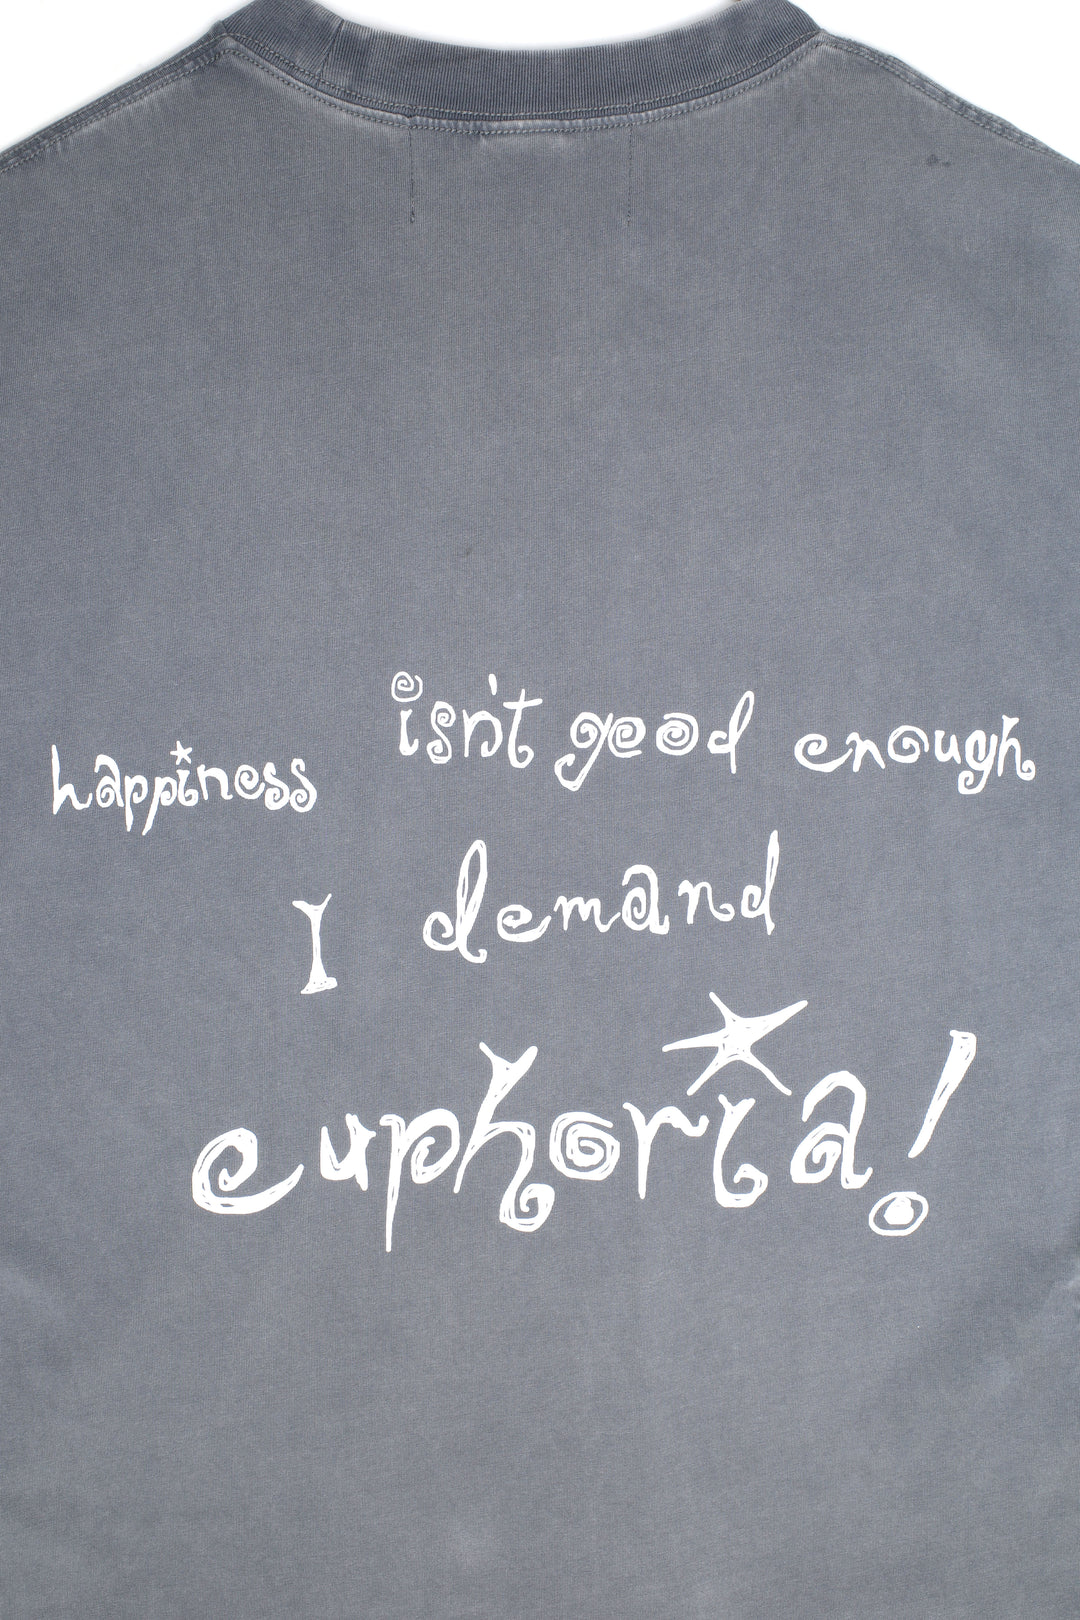 happiness isn't good enough
I demand
euphoria!